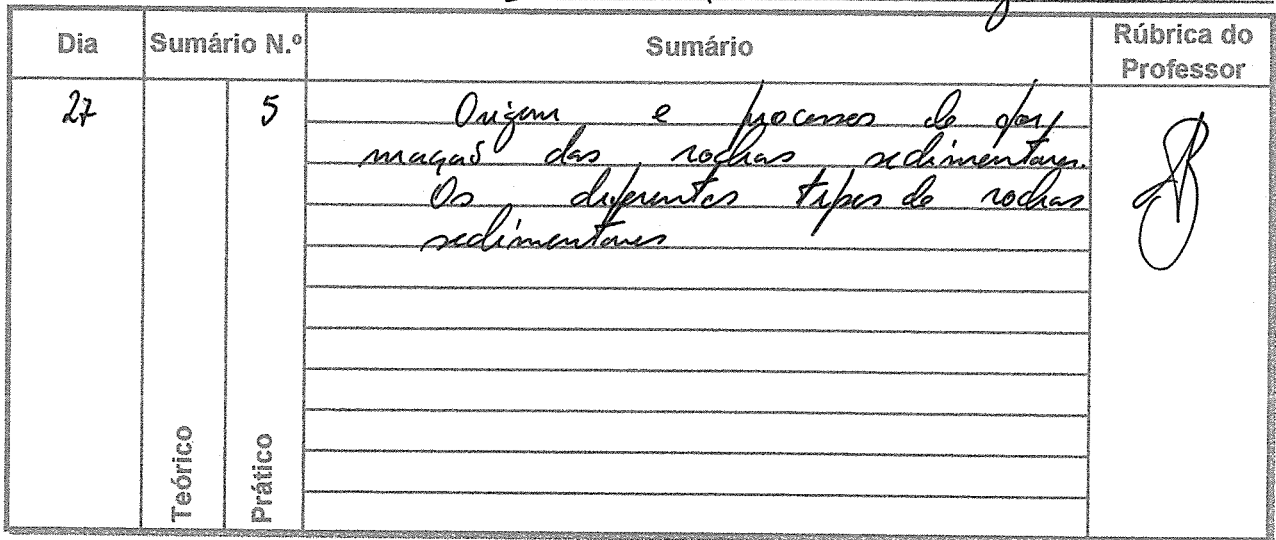 Dia Sumário N.º Sumário Rúbrica do Professor
27 5 Origem e processos de for/
mação das rochas sedimentares.
Os diferentes tipos de rochas
sedimentares
Teórico Prático